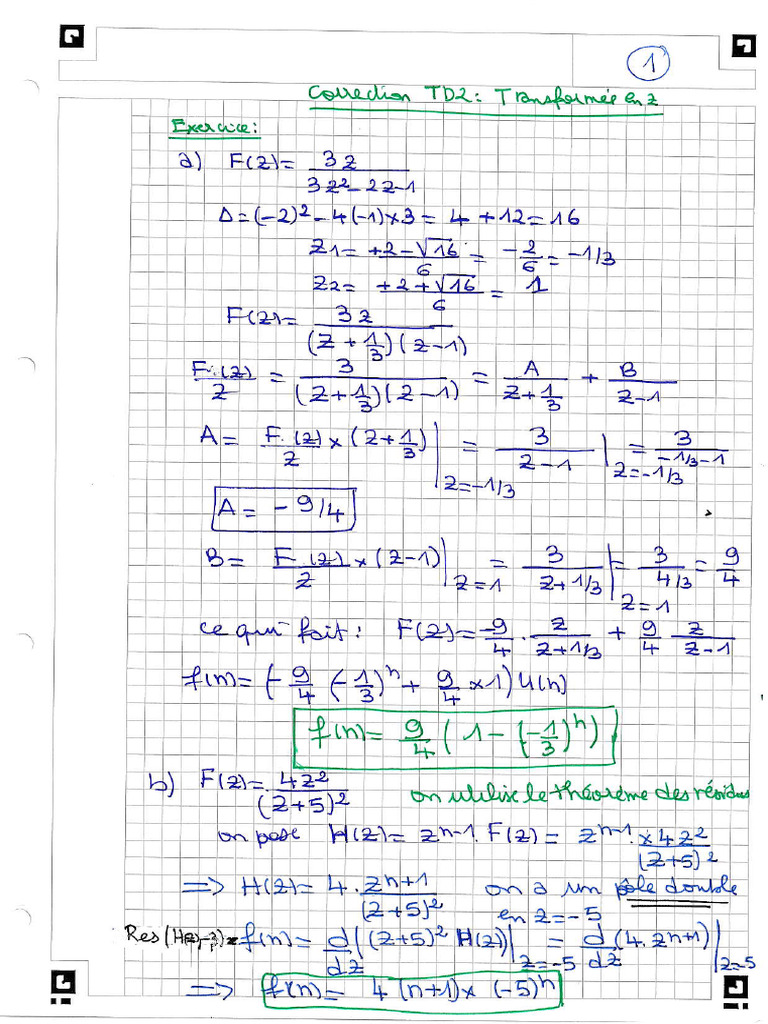 1
Correction TD2: Transformée en z
Exercice:
a) F(z) = 3z / (3z² - 2z - 1)
Δ = (-2)² - 4(-1)×3 = 4 + 12 = 16
z1 = (+2 - √16) / 6 = -2/6 = -1/3
z2 = (+2 + √16) / 6 = 1
F(z) = 3z / ((z + 1/3)(z - 1))
F(z)/z = 3 / ((z + 1/3)(z - 1)) = A / (z + 1/3) + B / (z - 1)
A = F(z)/z × (z + 1/3) |z=-1/3 = 3 / (z - 1) |z=-1/3 = 3 / (-1/3 - 1)
A = -9/4
B = F(z)/z × (z - 1) |z=1 = 3 / (z + 1/3) |z=1 = 3 / (4/3) = 9/4
ce qui fait: F(z) = -9/4 . z / (z + 1/3) + 9/4 z / (z - 1)
f(n) = (-9/4 (-1/3)ⁿ + 9/4 × 1) U(n)
f(n) = 9/4 (1 - (-1/3)ⁿ)
b) F(z) = 4z² / (z + 5)² on utilise le théorème des résidus
on pose H(z) = zⁿ⁻¹. F(z) = zⁿ⁻¹ × 4z² / (z + 5)²
⇒ H(z) = 4. zⁿ⁺¹ / (z + 5)² on a un pôle double
en z = -5
f(n) = d/dz ((z + 5)² H(z)) |z=-5 = d/dz (4. zⁿ⁺¹) |z=5
⇒ f(n) = 4 (n+1) × (-5)ⁿ